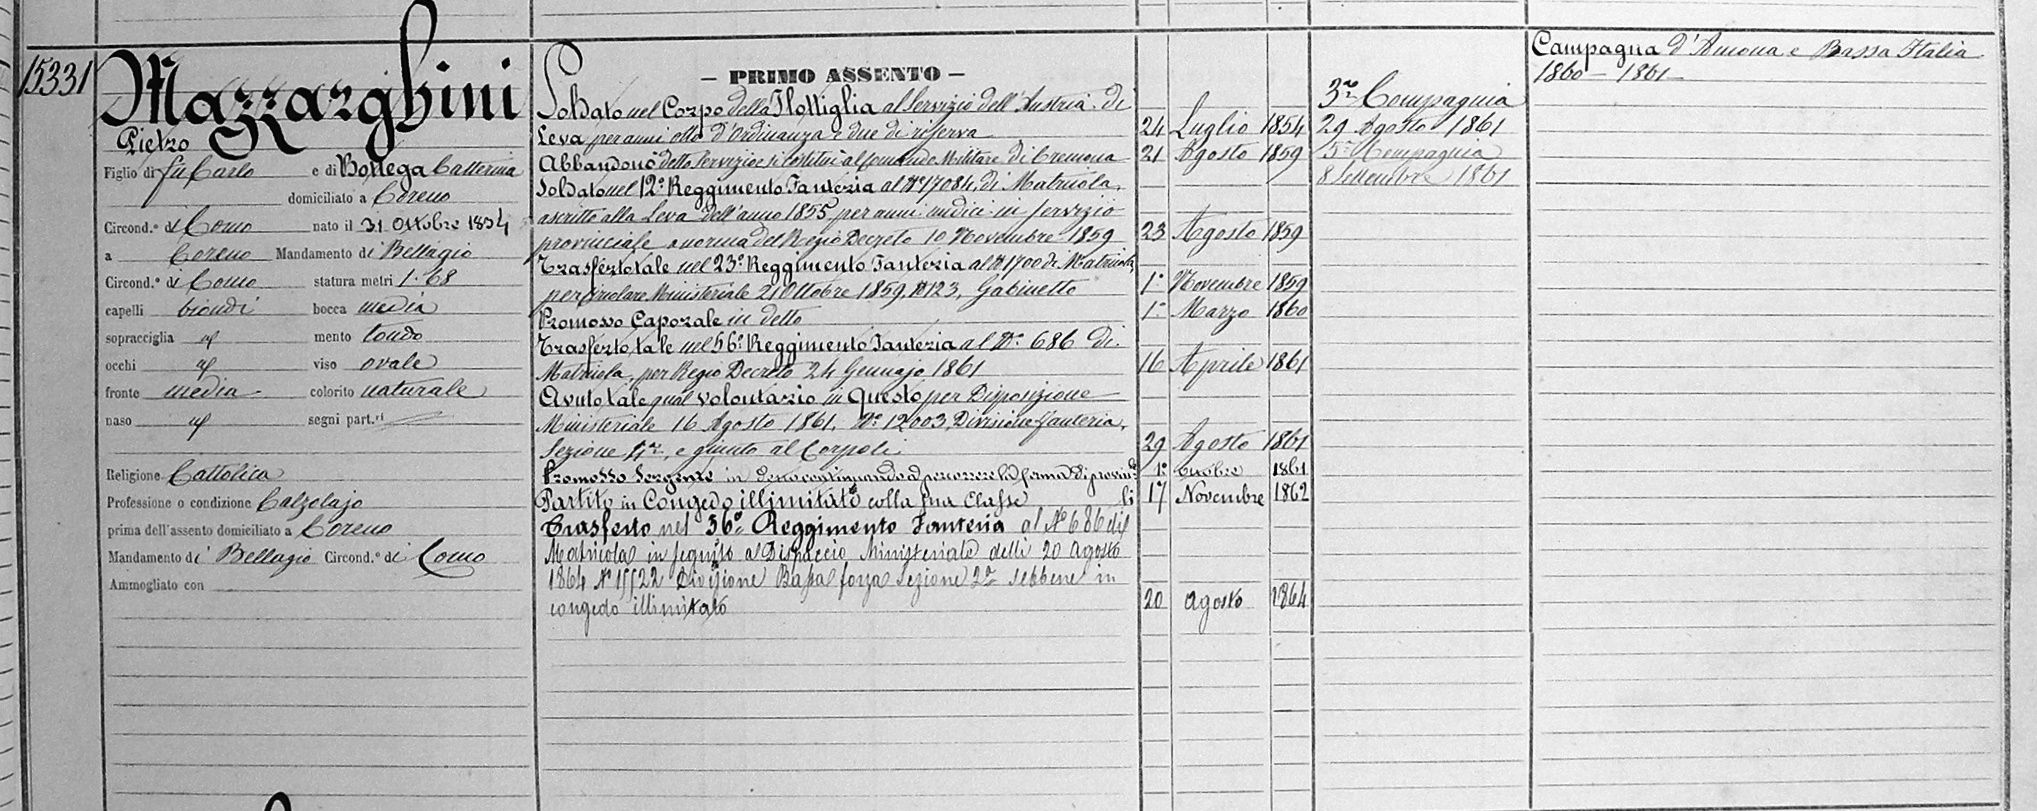 15331
Mazzarghini
Pietro
Figlio di fu Carlo e di Bottega Catterina
domiciliato a Coreno
Circond.º di Como nato il 31 Ottobre 1834
a Coreno Mandamento di Bellagio
Circond.º di Como statura metri 1.68
capelli biondi bocca media
sopracciglia id mento tondo
occhi id viso ovale
fronte media colorito naturale
naso id segni part.ri
Religione Cattolica
Professione o condizione Calzolajo
prima dell'assento domiciliato a Coreno
Mandamento di Bellagio Circond.º di Como
Ammogliato con
— PRIMO ASSENTO —
Soldato nel Corpo della Flottiglia al Servizio dell'Austria di
Leva per anni otto d'Ordinanza e due di riserva 24 Luglio 1854
Abbandonò detto Servizio e si costituì al Comando Militare di Cremona 21 Agosto 1859
Soldato nel 12º Reggimento Fanteria al Nº 17084 di Matricola,
ascritto alla Leva dell'anno 1855 per anni undici in servizio
provinciale a norma del Regio Decreto 10 Novembre 1859 23 Agosto 1859
Trasferto tale nel 23º Reggimento Fanteria al Nº 1700 di Matricola,
per Circolare Ministeriale 21 Ottobre 1859, Nº 123, Gabinetto 1º Novembre 1859
Promosso Caporale in detto 1º Marzo 1860
Trasferto tale nel 56º Reggimento Fanteria al Nº 686 di
Matricola, per Regio Decreto 24 Gennajo 1861 16 Aprile 1861
Avuto tale qual volontario in Questo per Disposizione
Ministeriale 16 Agosto 1861, Nº 12003, Divisione fanteria,
Sezione 4ª, e giunto al Corpo li 29 Agosto 1861
Promosso Sergente in detto continuando a percorrere la ferma di provinc.le 1º Ottobre 1861
Partito in Congedo illimitato colla sua Classe li 17 Novembre 1862
Trasferto nel 36º Reggimento Fanteria al Nº 686 di
Matricola in seguito a Dispaccio Ministeriale delli 20 Agosto
1864 Nº 15522 Divisione Bassa forza Sezione 2ª sebbene in
congedo illimitato 20 Agosto 1864
3ª Compagnia
29 Agosto 1861
5ª Compagnia
8 Settembre 1861
Campagna d'Ancona e Bassa Italia
1860 – 1861